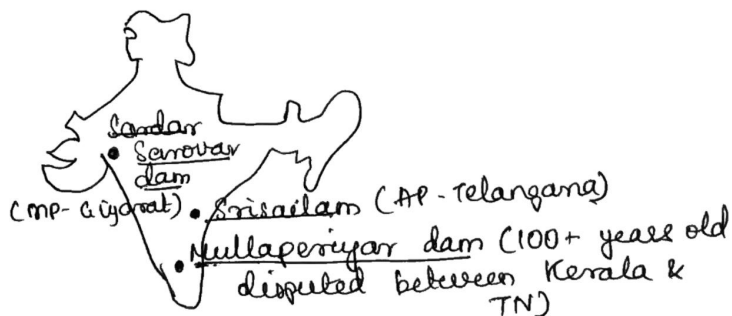 Sardar
Sarovar
dam
(MP-Gujarat)
Srisailam (AP-Telangana)
Mullaperiyar dam (100+ years old
disputed between Kerala &
TN)